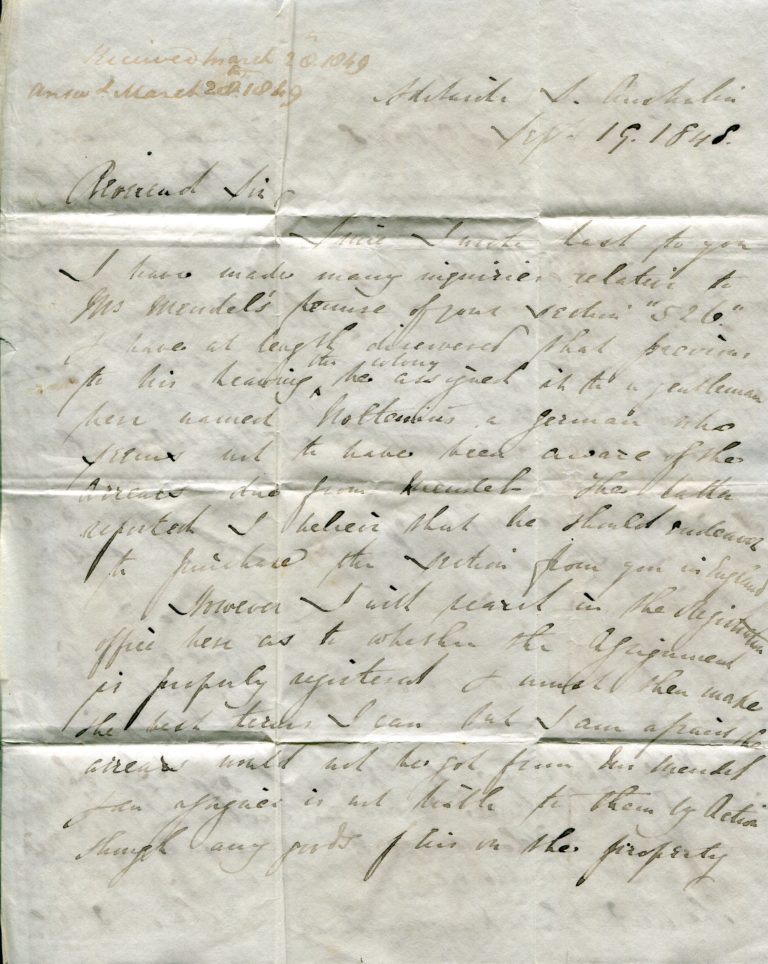 Received March 28th 1849
Answd March 28th 1849
Adelaide S. Australia
Sep. 19. 1848.
Reverend Sir
Since I wrote last to you
I have made many inquiries relative to
Mr Mendel's tenure of your section "526."
I have at length discovered that previous
to his leaving the colony he assigned it to a gentleman
here named Noltenius a German who
seems not to have been aware of the
arrears due from Mendel. The latter
I believe that he should endeavor
to purchase the section from you in England
However I will search in the Registration
office here as to whether the Assignment
is properly registered & must then make
the best terms I can but I am afraid the
arrears would not be got from Mr Mendel
& an assignee is not liable to them by Action
though any goods of his on the property